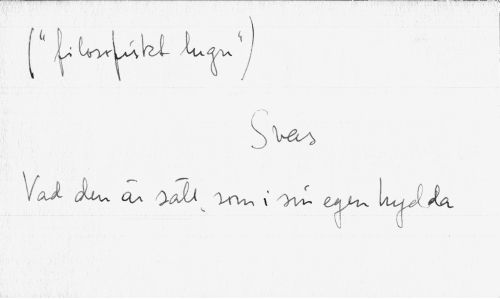 ("filosofiskt lugn")
Svas
Vad den är säll, som i sin egen hydda